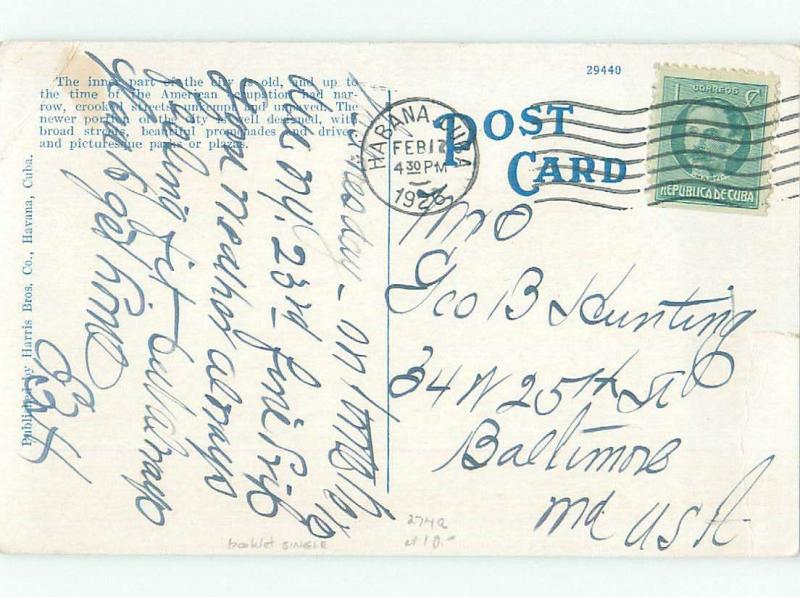 The inner part of the city is old, and up to
the time of the American occupation had nar-
row, crooked streets, unkempt and unpaved. The
newer portion of the city is well designed, with
broad streets, beautiful promenades and drives
and picturesque parks or plazas.
29440
POST
CARD
HABANA, CUBA
FEB 17
4 30 PM
1926
CORREOS
1 C
REPUBLICA DE CUBA
Mrs
Geo B Hunting
34 W 25th St
Baltimore
Md USA
day - on
N.Y. 23rd fine trip
weather always
feeling fit
time
Published by Harris Bros. Co., Havana, Cuba.
274a
booklet SINGLE